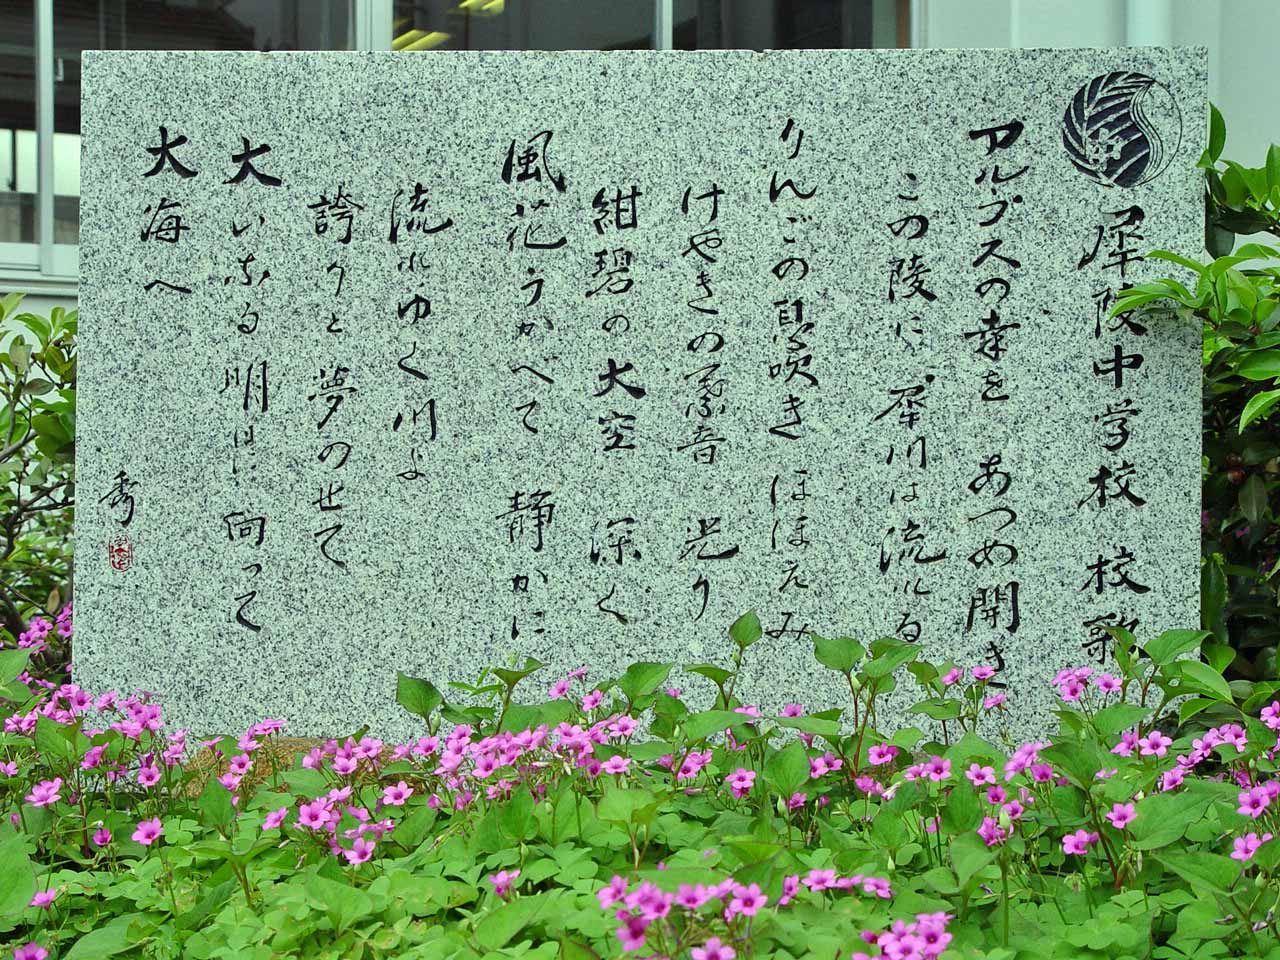 犀陵中学校 校歌
アルプスの幸を あつめ開き
この陵に 犀川は流れる
りんごの息吹き ほほえみ
けやきの葉音 光り
紺碧の大空 深く
風花うかべて 静かに
流れゆく川よ
誇りと夢のせて
大いなる明日に向って
大海へ
秀